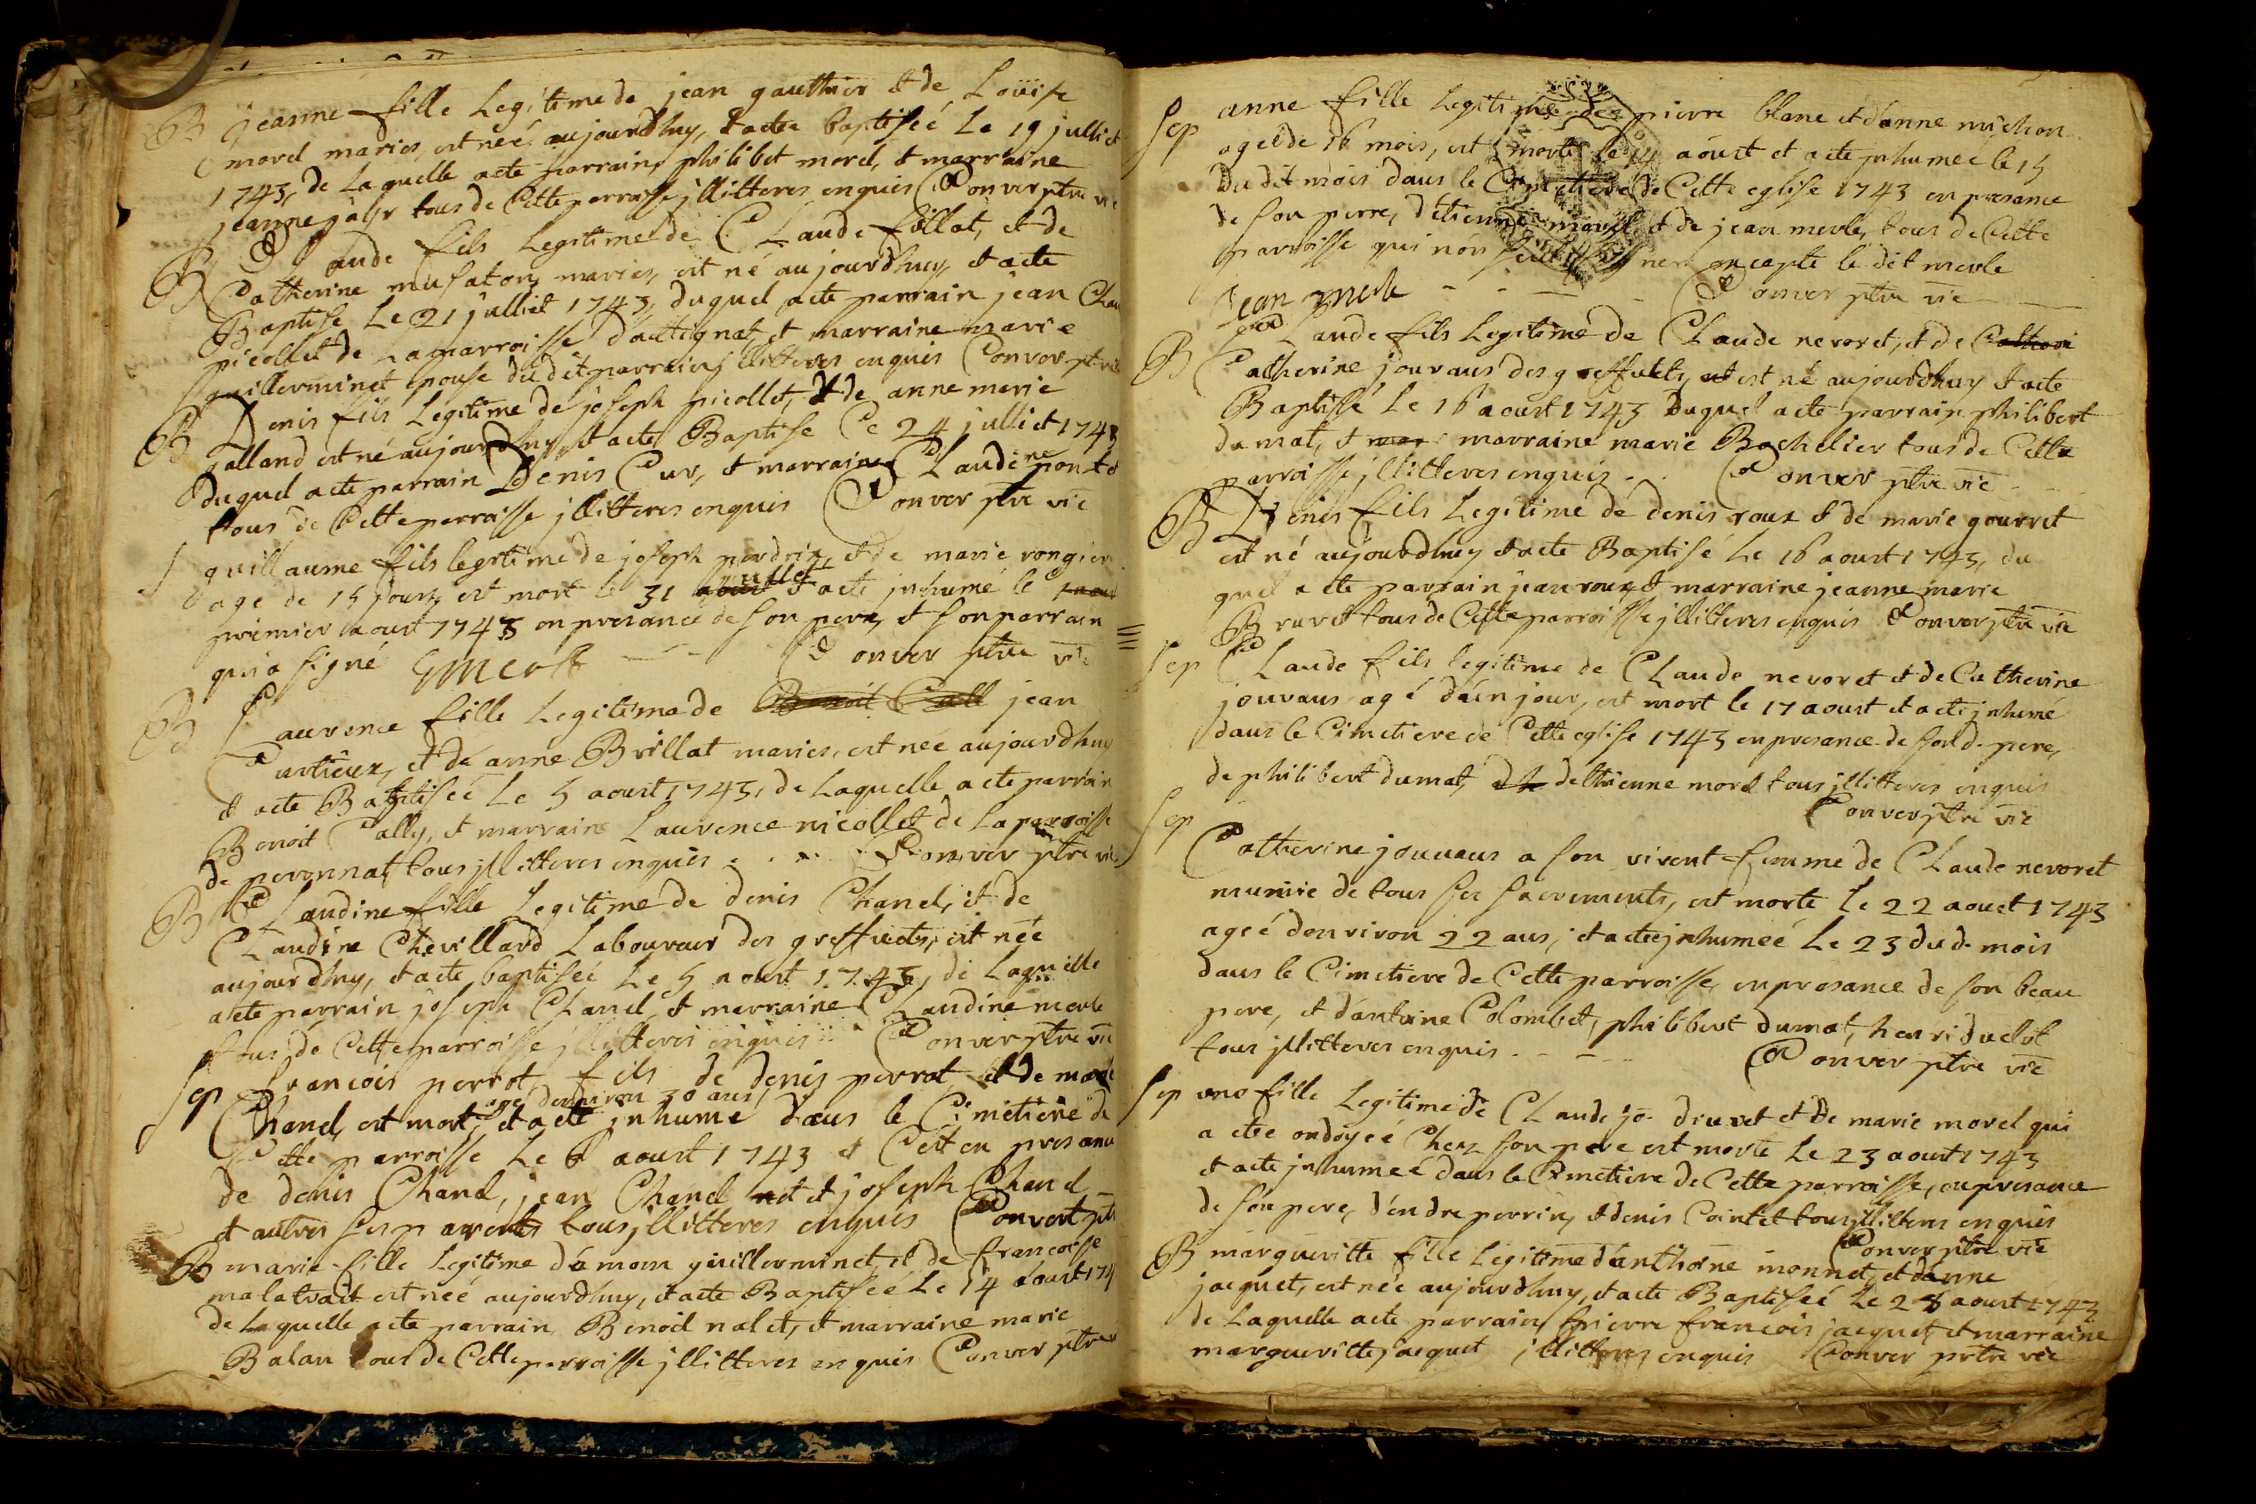 B jeanne fille Legitime de jean gauthier et de Loüise
morel maries, est néé aujourdhuy, et a ete baptiséé Le 19 julliet
1743, de Laquelle a ete parrain, philibet morel, et marraine
jeanne tous de Cette parroisse jllitteres enquis Conver ptre vic
B Claude fils Legitime de Claude fillot, et de
Catherine maries, est né aujourdhuy, et a ete
Baptise Le 21 julliet 1743, duquel a ete parrain jean
picollet de La parroisse d'attignat, et marraine marie
guillerminet epouse du dit parrain jllitteres enquis Conver ptre
B Denis fils Legitime de joseph picollet, et de anne marie
galland est né aujourdhuy et a ete Baptise Ce 24 julliet 1743
duquel a ete parrain Denis Cur, et marraine Claudine
tous de Cette parroisse jllitteres enquis Conver ptre vic
S guillaume fils legitime de joseph perdrix, et de marie rongier
age de 15 jours, est mort le 31 aoust julliet et a ete jnhumé le 1 aoust
premier aoust 1743 en presance de son pere, et son parrain
qui a signé Conver ptre vic
B Laurence fille Legitime de Benoit Call jean
Curtieux, et de anne Brillat maries, est née aujourdhuy
et a ete Baptiséé Le 5 aoust 1743, de Laquelle a ete parrain
Benoit Cally, et marraine Laurence nicollet de La parroisse
de peronnat tous jllitteres enquis Conver ptre vic
B Claudine fille Legitime de denis Chanel, et de
Claudine Chevillard Laboureur des greffuets, est née
aujourdhuy, et a ete baptiséé Le 5 aoust 1743, de Laquelle
a ete parrain joseph Chanel, et marraine Claudine merle
tous de Cette parroisse jllitteres enquis Conver ptre vic
sep francois perrot, fils de denis perrot, et de marie
Chanel, est mort, age denviron 30 ans, et a ete jnhume dans le Cimetiere de
Cette parroisse Le 6 aoust 1743 et Cest en presance
de denis Chanel, jean Chanel et joseph Chanel
et autres ses parents tous jllitteres enquis Convert ptr
B marie fille Legitime d'emom guillerminet, et de francoise
malatrait est néé aujourdhuy, et a ete Baptiséé Le 14 aoust 174
de Laquelle a ete parrain Benoit nalet, et marraine marie
Balan tous de Cette parroisse jllitteres enquis Conver ptre
sep anne fille Legitime de pierre blanc et d'anne michon
ageé de 16 mois, est morte le 14 aoust et a ete jnhumeé le 15
Du dit mois dans le Cimetiere de Cette eglise 1743 en presance
de son perre, d'etienne morel, et de jean merle, tous de Cette
parroisse qui non sceu signer excepte le dit merle
jean merle Conver ptre vic
B Claude fils Legitime de Claude nevoret, et de Catheri
Catherine jouvaus des greffuets, et est né aujourdhuy et a ete
Baptisé Le 16 aoust 1743 duquel a ete parrain philibert
dumat, et mar marraine marie Bachelier tous de Cette
parroisse jllitteres enquis Conver ptre vic
B Denis fils Legitime de denis roux et de marie gourret
est né aujourdhuy et a ete Baptisé Le 16 aoust 1743, du
quel a ete parrain jean roux, et marraine jeanne marie
Bruret tous de Cette parroisse jllitteres enquis Conver ptre vic
sep Claude fils legitime de Claude nevoret et de Catherine
jouvaus agé d'un jour, est mort le 17 aoust et a ete jnhumé
dans le Cimetiere de Cette eglise 1743 en presance de son d. pere,
de philibert dumat, detienne morel tous jllitteres enquis
Conver ptre vic
sep Catherine jouvaus a son vivent femme de Claude nevoret
munie de tous ses sacrements, est morte le 22 aoust 1743
ageé denviron 22 ans, et a ete jnhumeé Le 23 du d. mois
dans le Cimetiere de Cette parroisse, en presance de son beau
pere, et d'antoine Colombet, philibert dumat, henri duclot
tous jllitteres enquis Conver ptre vic
sep une fille Legitime de Claude jo. druret et de marie morel qui
a ete ondoyeé Chez son pere est morte Le 23 aoust 1743
et a ete jnhumeé dans le Cimetiere de Cette parroisse, en presance
de son pere, d'endre perrin, et denis Cointet tous jllitteres enquis
Conver ptre vic
B margueritte fille Legitime d'anthoine monnet, et d'anne
jacquet, est née aujourdhuy, et a ete Baptiséé Le 28 aoust 1743
de Laquelle a ete parrain pierre francois jacquet, et marraine
margueritte jacquet jllitteres enquis Conver prtre vic